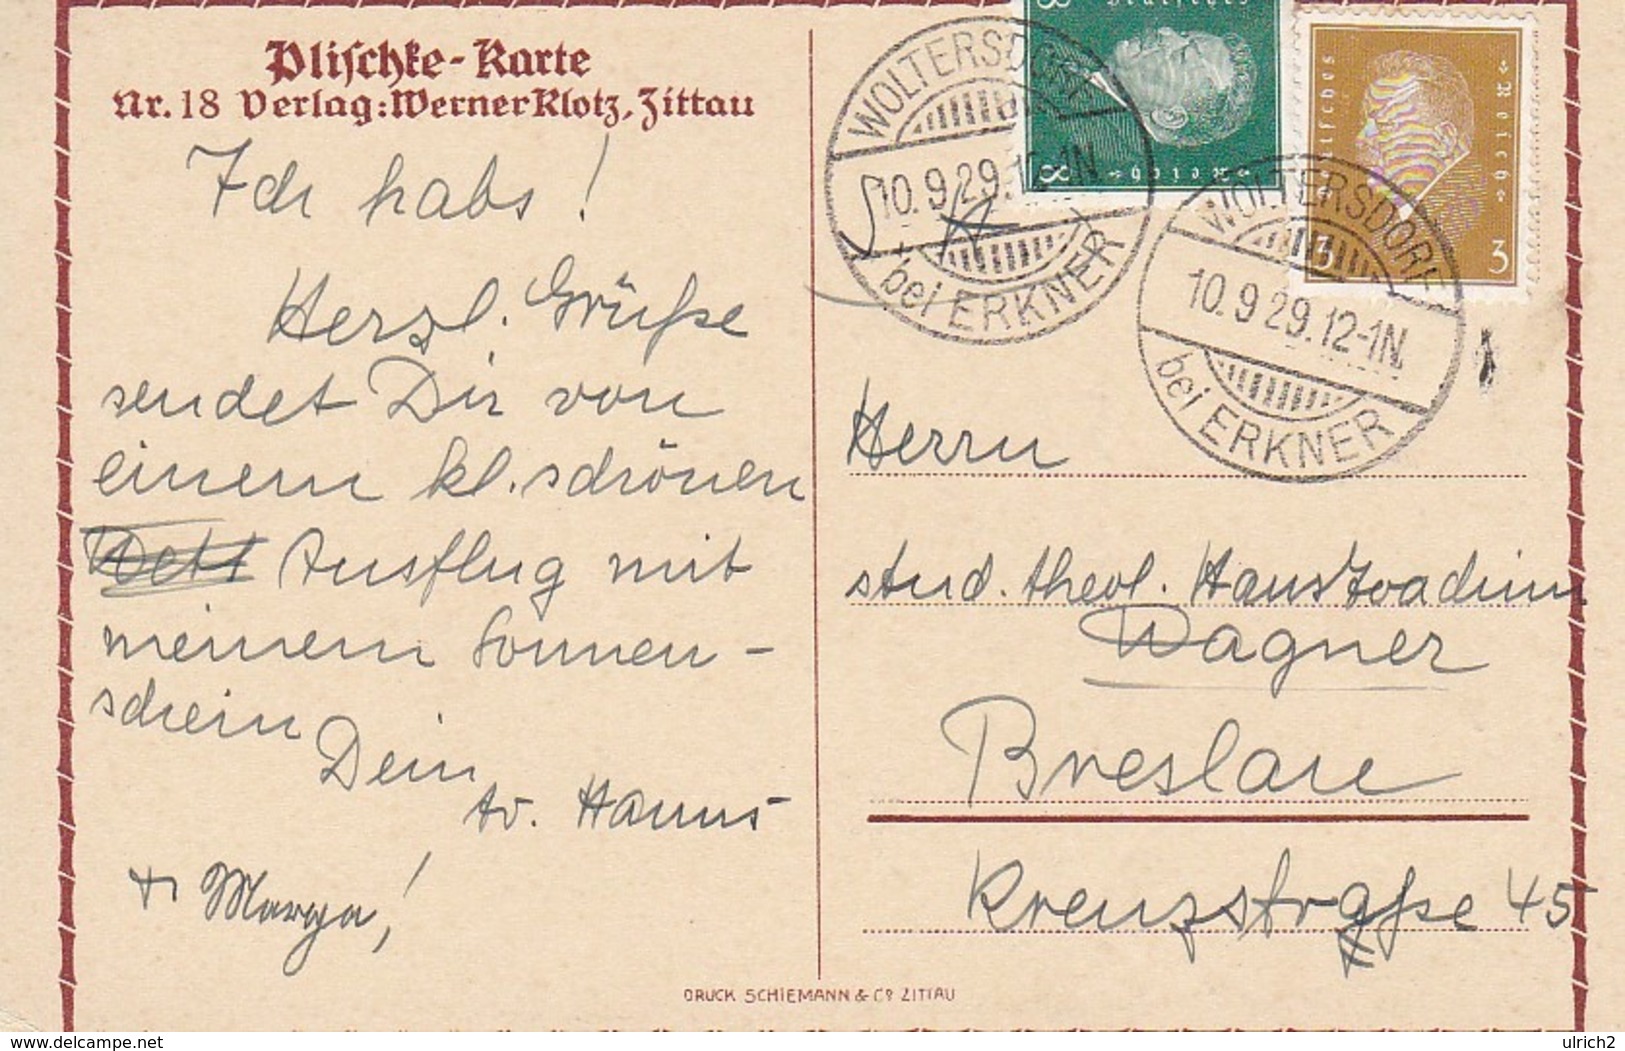 Plischke-Karte
Nr. 18 Verlag: Werner Klotz, Zittau
Ich habs!
Herzl. Grüße
sendet Dir von
einem kl. schönen
Ausflug mit
meinem Sonnen-
schein
Dein
tr. Hanns
+ Marga!
8 Deutsches
Reich 8
Deutsches Reich
3 3
WOLTERSDORF
10.9.29.12-1N.
bei ERKNER
WOLTERSDORF
10.9.29.12-1N.
bei ERKNER
Herrn
stud. theol. Hans Joachim
Wagner
Breslau
Kreuzstraße 45
DRUCK SCHIEMANN & Co ZITTAU
www.delcampe.net
ulrich2